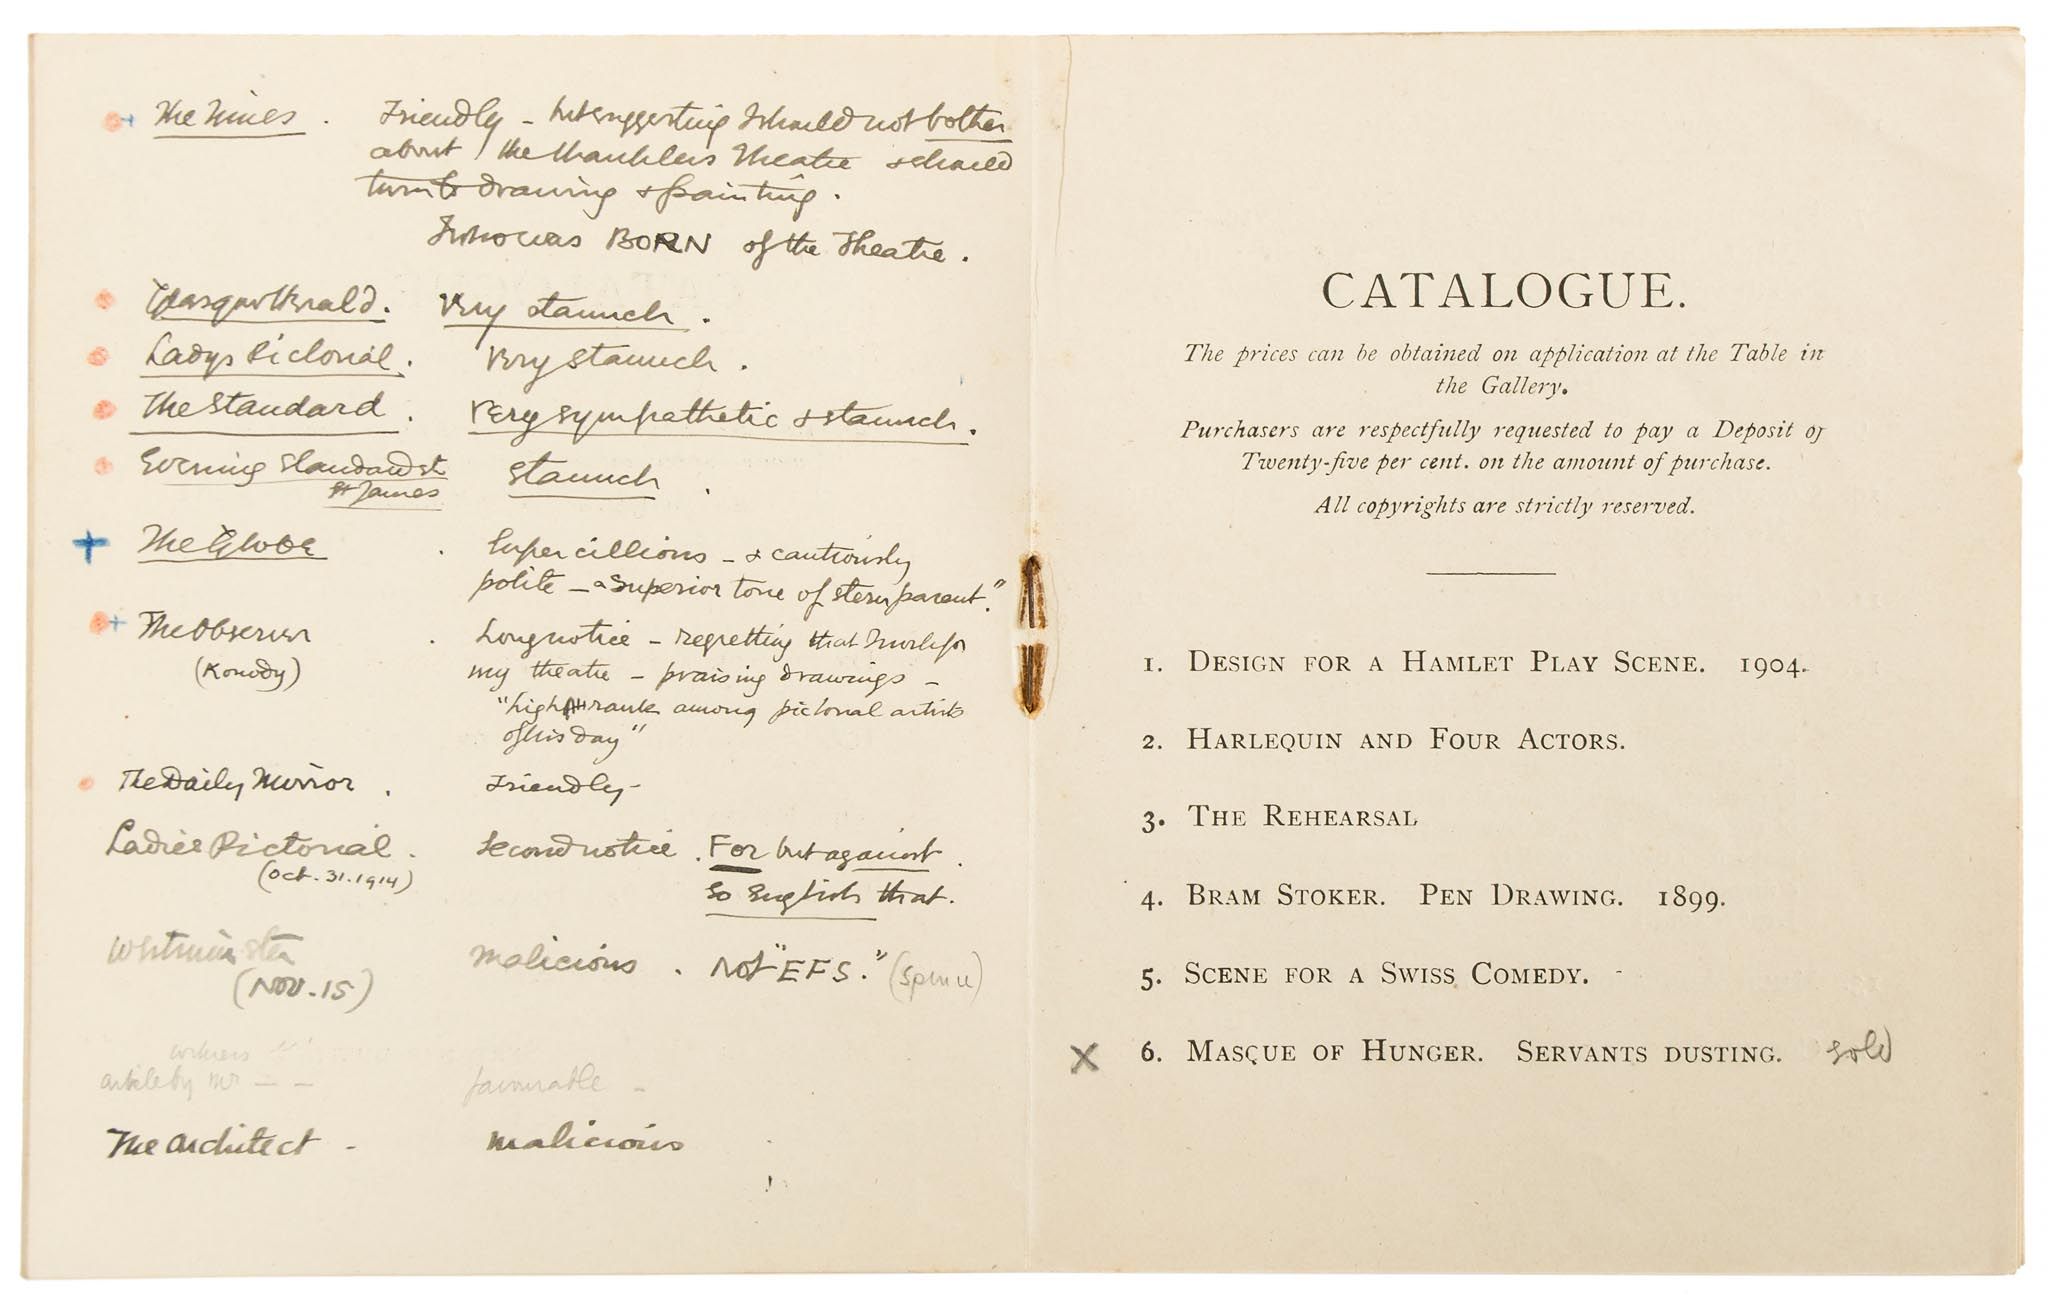 The Times. Friendly – but suggesting I should not bother
about the thankless Theatre & should
turn to drawing & painting.
I who was BORN of the Theatre.
Glasgow Herald. Very staunch.
Ladys Pictorial. Very staunch.
The Standard. Very sympathetic & staunch.
Evening Standard & St James staunch.
The Globe. Supercillious – & cautiously
polite – "a superior tone of stern parent."
The Observer. Long notice – regretting that I work for
(Konody) my theatre – praising drawings –
"high rank among pictorial artists
of his day"
The Daily Mirror. Friendly –
Ladies Pictorial. Second notice. For but against.
(Oct. 31. 1914) so English that.
Westminster malicious. Not "EFS." (
(Nov. 15)
article by Mr – – favourable –
The Architect – malicious
CATALOGUE.
The prices can be obtained on application at the Table in
the Gallery.
Purchasers are respectfully requested to pay a Deposit of
Twenty-five per cent. on the amount of purchase.
All copyrights are strictly reserved.
1. DESIGN FOR A HAMLET PLAY SCENE. 1904.
2. HARLEQUIN AND FOUR ACTORS.
3. THE REHEARSAL
4. BRAM STOKER. PEN DRAWING. 1899.
5. SCENE FOR A SWISS COMEDY.
X 6. MASQUE OF HUNGER. SERVANTS DUSTING. Sold